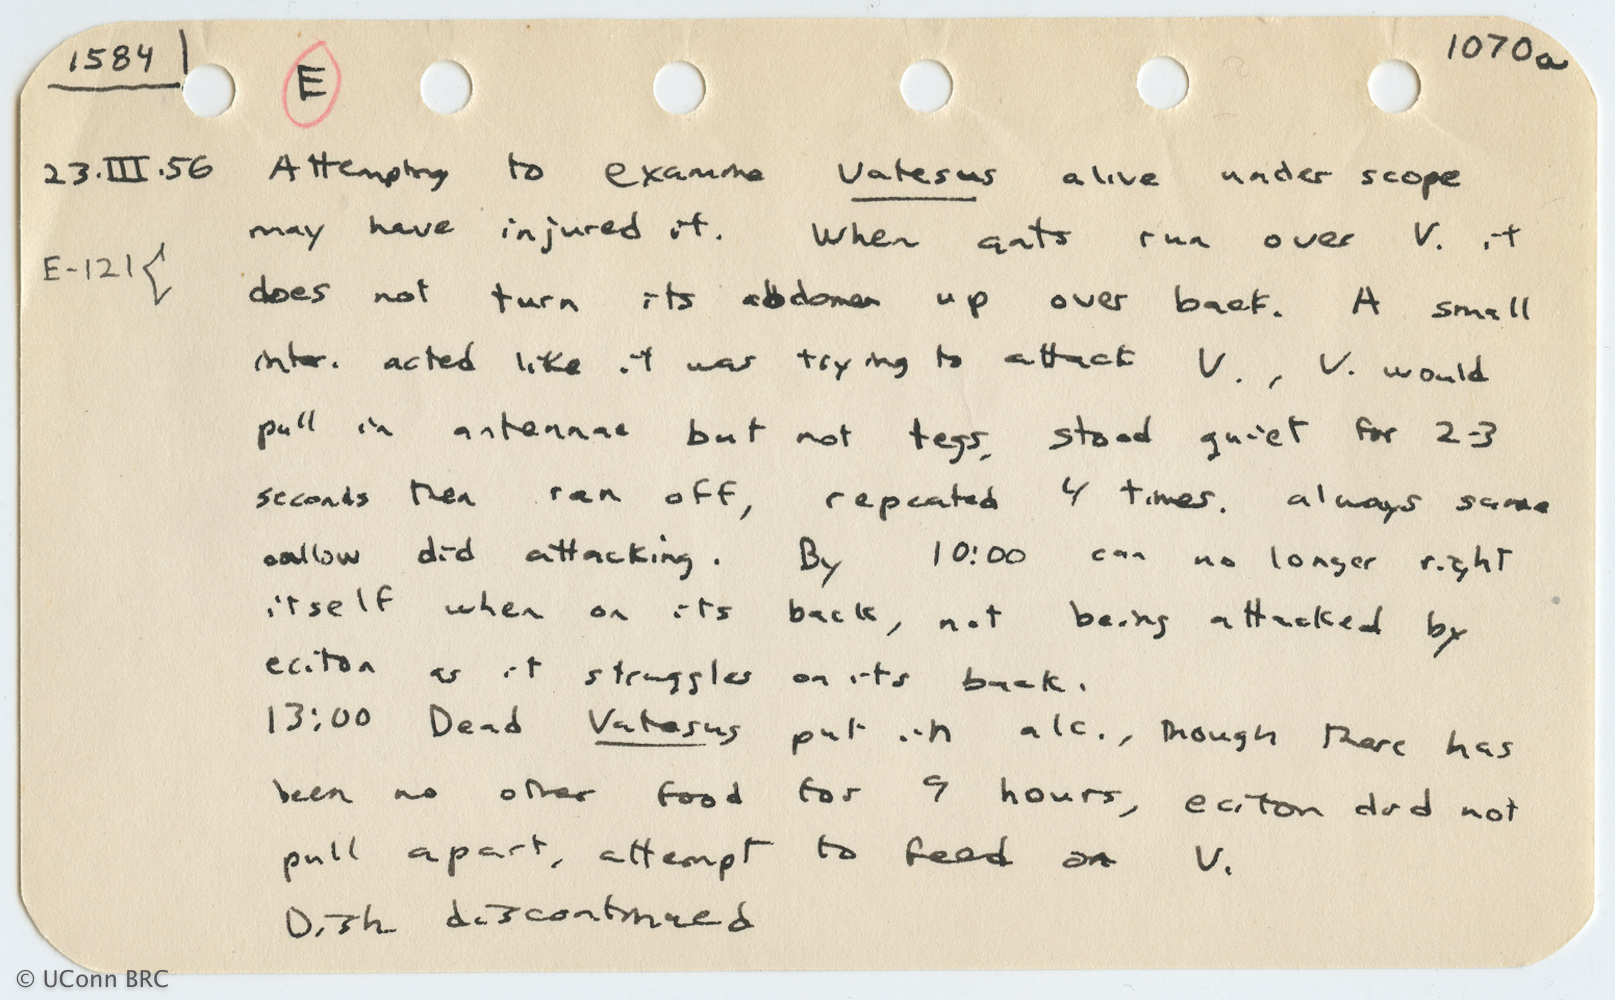 1584
E
1070a
23.III.56 Attempting to examine Vatesus alive under scope
may have injured it. When ants run over V. it
E-121{
does not turn its abdomen up over back. A small
inter. acted like it was trying to attack V., V. would
pull in antennae but not legs, stood quiet for 2-3
seconds then ran off, repeated 4 times. always same
callow did attacking. By 10:00 can no longer right
itself when on its back, not being attacked by
eciton as it struggles on its back.
13:00 Dead Vatesus put in alc., though there has
been no other food for 9 hours, eciton did not
pull apart, attempt to feed on V.
Dish discontinued
© UConn BRC